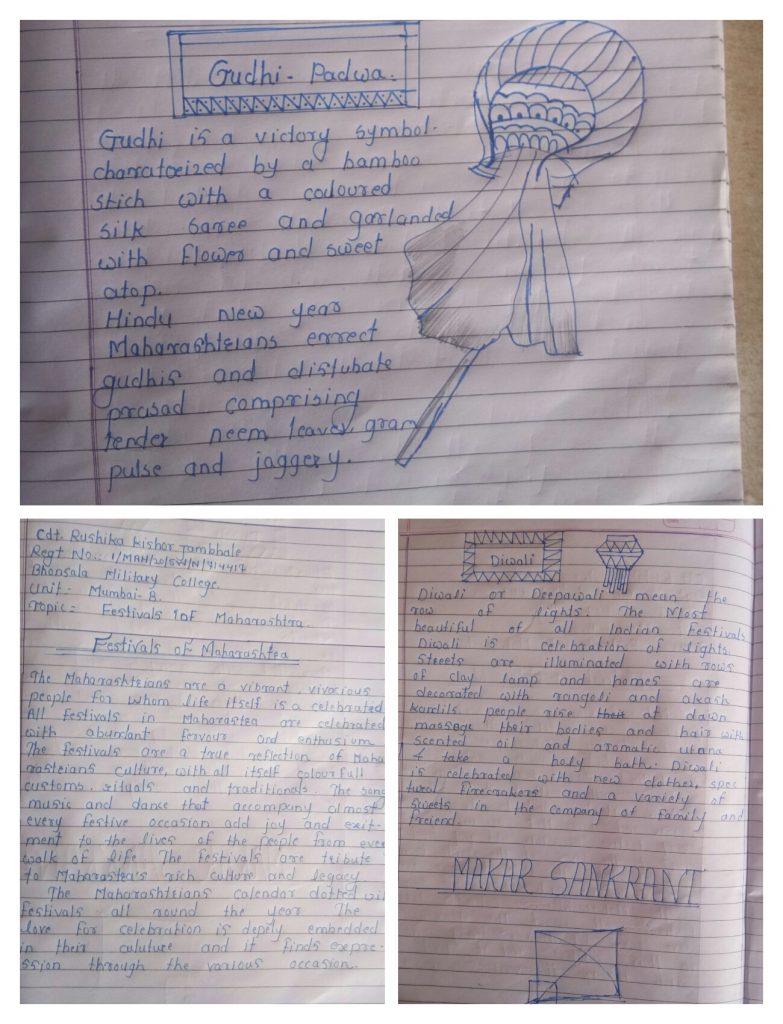 Gudhi - Padwa.
Gudhi is a victory symbol.
charratoeized by a bamboo
stich with a coloured
silk saree and garlanded
with flower and sweet
atop.
Hindu New year
Maharashteians errect
gudhis and distubate
prasad comprising
tender neem leaves, gram
pulse and jaggery.
Cdt. Rushika Kishor Jambhale
Regt No.:
Bhonsala Military College.
Unit - Mumbai-B.
Topic = Festivals of Maharashtra.
Festivals of Maharashtea
The Maharashteians are a vibrant, vivocious
people for whom life itself is a celebrated
All festivals in Maharastea are celebrated
with abundant fervour and enthusism
The festivals are a true reflection of Maha
rasteians culture, with all itself colourfull
customs, rituals and traditionals. The song
music and dance that accompany almost
every festive occasion add joy and exit-
ment to the lives of the people from eve
walk of life The festivals are tribute
to Maharastea's rich culture and legacy
The Maharashteians calendar dotted wi
festivals all round the year The
love for celebration is deply embedded
in their cululture and it finds expre-
ssion through the various occasion.
Diwali
Diwali or Deepawali mean the
row of lights. The Most
beautiful of all Indian Festivals
Diwali is celebration of lights.
Streets are illuminated with rows
of clay lamp and homes are
decorated with rangeli and akash
kandils people rise at dawn
massage their bodies and hair with
scented oil and aromatic utana
& take a holy bath. Diwali
is celebrated with new clothes, spec
tural firecrakers and a variety of
sweets in the company of family and
freiend.
MAKAR SANKRANT